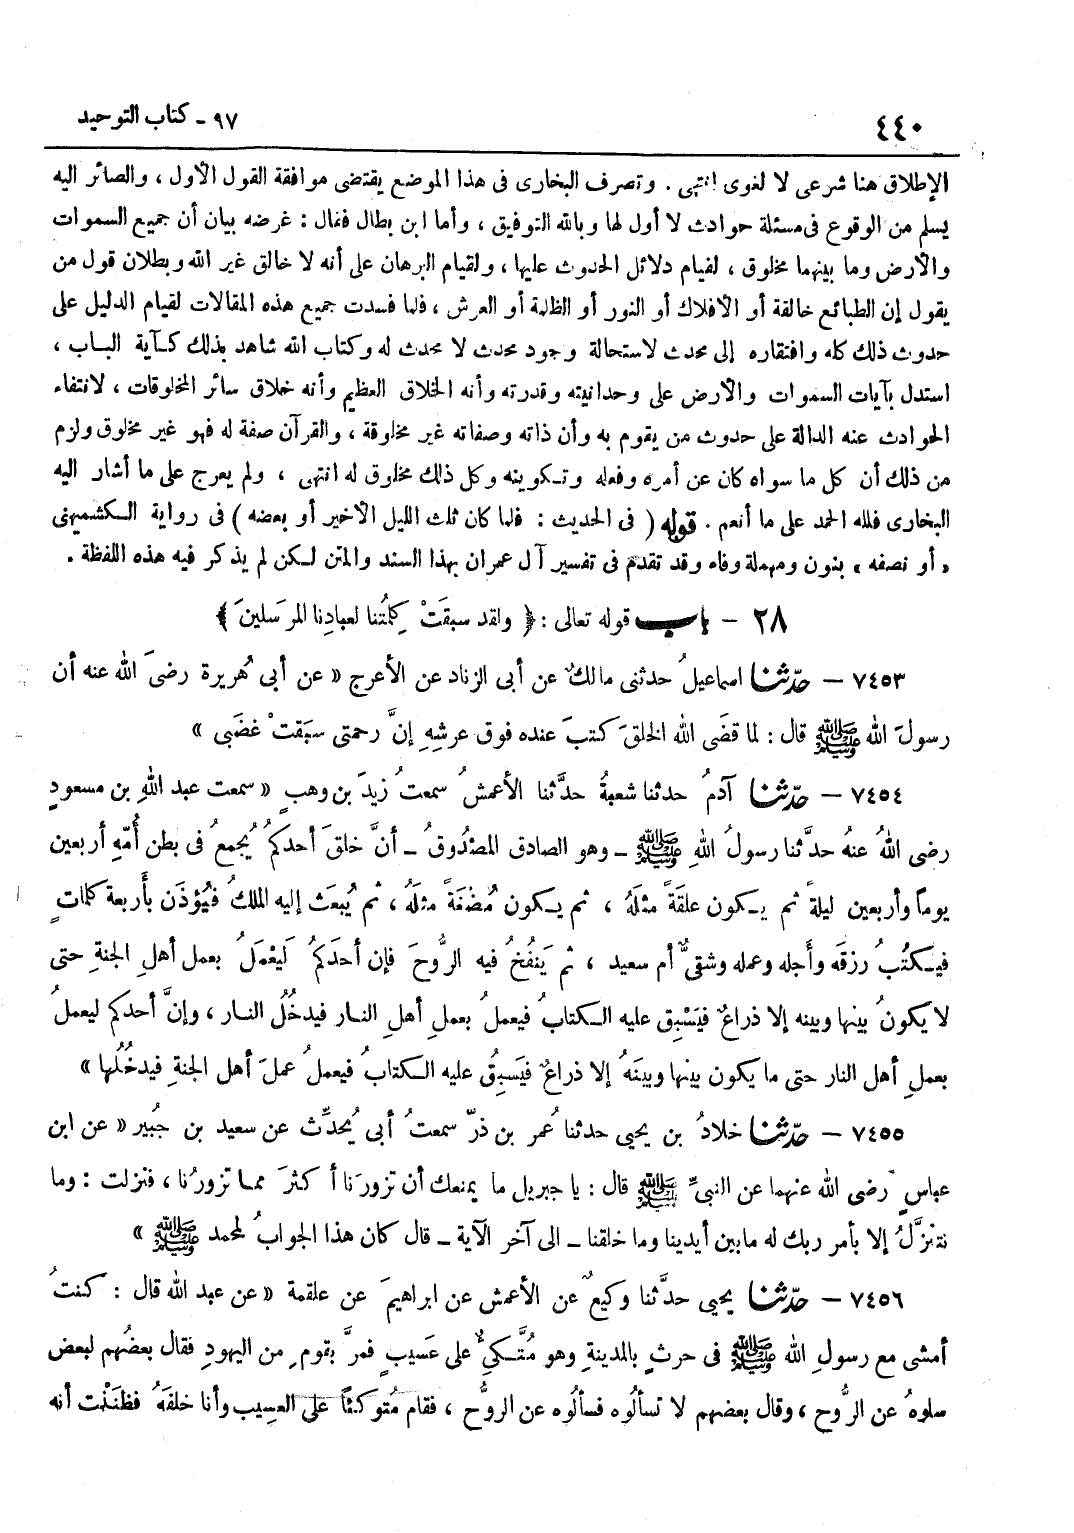 ٤٤٠
٩٧ - كتاب التوحيد
الإطلاق هنا شرعى لا لغوى انتهى . وتصرف البخارى فى هذا الموضع يقتضى موافقة القول الأول ، والصائر اليه
يسلم من الوقوع فى مسئلة حوادث لا أول لها وبالله التوفيق ، وأما ابن بطال فقال : غرضه بيان أن جميع السموات
والأرض وما بينهما مخلوق ، لقيام دلائل الحدوث عليها ، ولقيام البرهان على أنه لا خالق غير الله وبطلان قول من
يقول إن الطبائع خالقة أو الأفلاك أو النور أو الظلمة أو العرش ، فلما فسدت جميع هذه المقالات لقيام الدليل على
حدوث ذلك كله وافتقاره إلى محدث لاستحالة وجود محدث لا محدث له وكتاب الله شاهد بذلك كآية الباب ،
استدل بآيات السموات والأرض على وحدانيته وقدرته وأنه الخلاق العظيم وأنه خلاق سائر المخلوقات ، لانتفاء
الحوادث عنه الدالة على حدوث من يقوم به وأن ذاته وصفاته غير مخلوقة ، والقرآن صفة له فهو غير مخلوق ولزم
من ذلك أن كل ما سواه كان عن أمره وفعله وتكوينه وكل ذلك مخلوق له انتهى ، ولم يعرج على ما أشار اليه
البخارى فلله الحمد على ما أنعم . قوله ( فى الحديث : فلما كان ثلث الليل الأخير أو بعضه ) فى رواية الكشميهنى
« أو نصفه » بنون ومهملة وفاء وقد تقدم فى تفسير آل عمران بهذا السند والمتن لكن لم يذكر فيه هذه اللفظة .
٢٨ - باب قوله تعالى : ﴿ ولقد سبقَتْ كلمتُنا لعبادِنا المرسَلينَ ﴾
٧٤٥٣ - حدّثنا اسماعيلُ حدثنى مالكٌ عن أبى الزناد عن الأعرج « عن أبى هُريرة رضىَ الله عنه أن
رسولَ الله ﷺ قال : لما قضَى الله الخلقَ كتبَ عنده فوق عرشِهِ إنَّ رحمتى سبَقتْ غضَبى »
٧٤٥٤ - حدّثنا آدمُ حدثنا شعبةُ حدَّثنا الأعمشُ سمعتُ زيدَ بن وهبٍ « سمعت عبد اللهِ بن مسعودٍ
رضى اللهُ عنهُ حدَّثنا رسولُ اللهِ ﷺ - وهو الصادق المصْدُوقُ - أنَّ خلقَ أحدكمُ يُجمعُ فى بطن أُمّهِ أربعين
يوماً وأربعين ليلةً ثم يكون علقَةً مثلَهُ ، ثم يكون مُضغَةً مثلَهُ ، ثم يُبعَث إليه الملكُ فيُؤذَن بأَربعة كلماتٍ
فيكتُبُ رزقَه وأَجله وعمله وشقىٌّ أم سعيد ، ثم يَنفُخُ فيه الرُّوحَ فإن أحدَكمُ لَيعْمَلُ بعمل أهلِ الجنةِ حتى
لا يكونُ بينها وبينه إلا ذراعٌ فيَسْبِق عليه الكتابُ فيعملُ بعملِ أهلِ النار فيدخُلُ النار ، وإنَّ أحدكم ليعملُ
بعملِ أهل النار حتى ما يكون بينها وبينَهُ إلا ذراعٌ فيَسبِقُ عليه الكتابُ فيعملُ عملَ أهل الجنةِ فيدخُلُها »
٧٤٥٥ - حدّثنا خلادُ بن يحيى حدثنا عُمر بن ذرّ سمعتُ أبى يُحدِّث عن سعيد بن جُبير « عن ابن
عباسٍ رضى الله عنهما عن النبىِّ ﷺ قال : يا جبريل ما يمنعك أن تزورَنا أكثرَ مما تزورُنا ، فنزلت : وما
نتنزَّلُ إلا بأمر ربك له ما بين أيدينا وما خلفنا - الى آخر الآية - قال كان هذا الجوابُ لمحمد ﷺ »
٧٤٥٦ - حدّثنا يحيى حدَّثنا وكيعٌ عن الأعمش عن ابراهيمَ عن علقمة « عن عبد الله قال : كنتُ
أمشى مع رسولِ الله ﷺ فى حرثٍ بالمدينةِ وهو مُتَّكىءٌ على عَسيبٍ فمرَّ بقومٍ من اليهودِ فقال بعضُهم لبعض
سلوهُ عن الرُّوح ، وقال بعضهم لا تسألُوه فسألُوه عن الروُّح ، فقام مُتوكئاً على العسِيب وأنا خلفَهُ فظنَنْت أنه